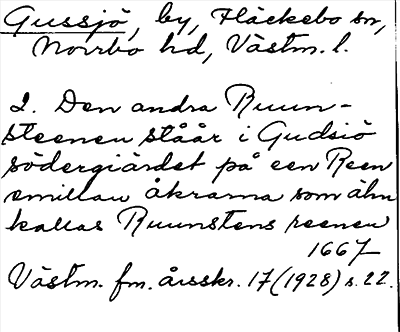 Gussjö, by, Fläckebo sn,
Norrbo hd, Västm. l.
2. Den andra Ruun-
steenen ståår i Gudsiö
södergiärdet på een Reen
emillan åkrarna som ähn
kallas Ruunstens reenen
1667
Västm. fm. årsskr. 17 (1928) s. 22.